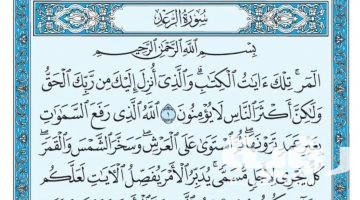 سُورَةُ الرَّعْدِ
بِسْمِ اللَّهِ الرَّحْمَٰنِ الرَّحِيمِ
الٓمٓر ۚ تِلْكَ ءَايَٰتُ الْكِتَٰبِ ۗ وَالَّذِىٓ أُنزِلَ إِلَيْكَ مِن رَّبِّكَ الْحَقُّ
وَلَٰكِنَّ أَكْثَرَ النَّاسِ لَا يُؤْمِنُونَ ١ اللَّهُ الَّذِى رَفَعَ السَّمَٰوَٰتِ
بِغَيْرِ عَمَدٍ تَرَوْنَهَا ۖ ثُمَّ اسْتَوَىٰ عَلَى الْعَرْشِ ۖ وَسَخَّرَ الشَّمْسَ وَالْقَمَرَ ۖ
كُلٌّ يَجْرِى لِأَجَلٍ مُّسَمًّى ۚ يُدَبِّرُ الْأَمْرَ يُفَصِّلُ الْءَايَٰتِ لَعَلَّكُم